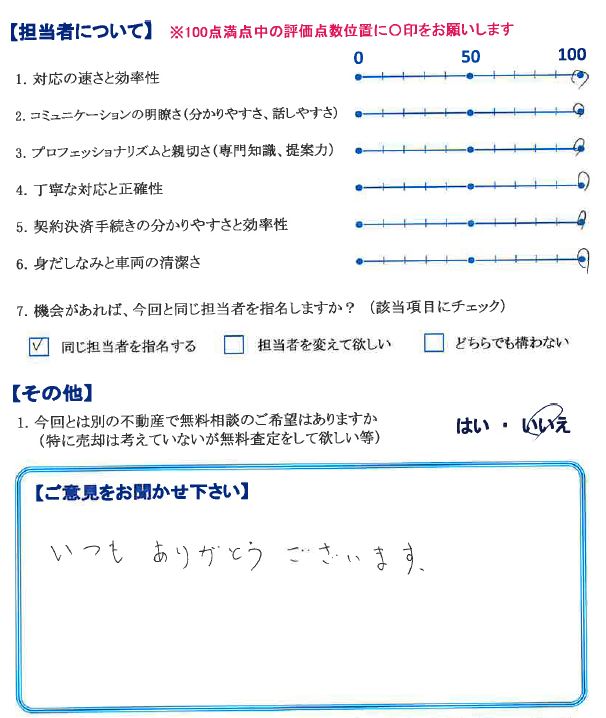 【担当者について】 ※100点満点中の評価点数位置に〇印をお願いします
0 50 100
1. 対応の速さと効率性
2. コミュニケーションの明瞭さ(分かりやすさ、話しやすさ)
3. プロフェッショナリズムと親切さ(専門知識、提案力)
4. 丁寧な対応と正確性
5. 契約決済手続きの分かりやすさと効率性
6. 身だしなみと車両の清潔さ
7. 機会があれば、今回と同じ担当者を指名しますか? (該当項目にチェック)
同じ担当者を指名する 担当者を変えて欲しい どちらでも構わない
【その他】
1. 今回とは別の不動産で無料相談のご希望はありますか
(特に売却は考えていないが無料査定をして欲しい等)
はい ・ いいえ
【ご意見をお聞かせ下さい】
いつも ありがとう ございます。